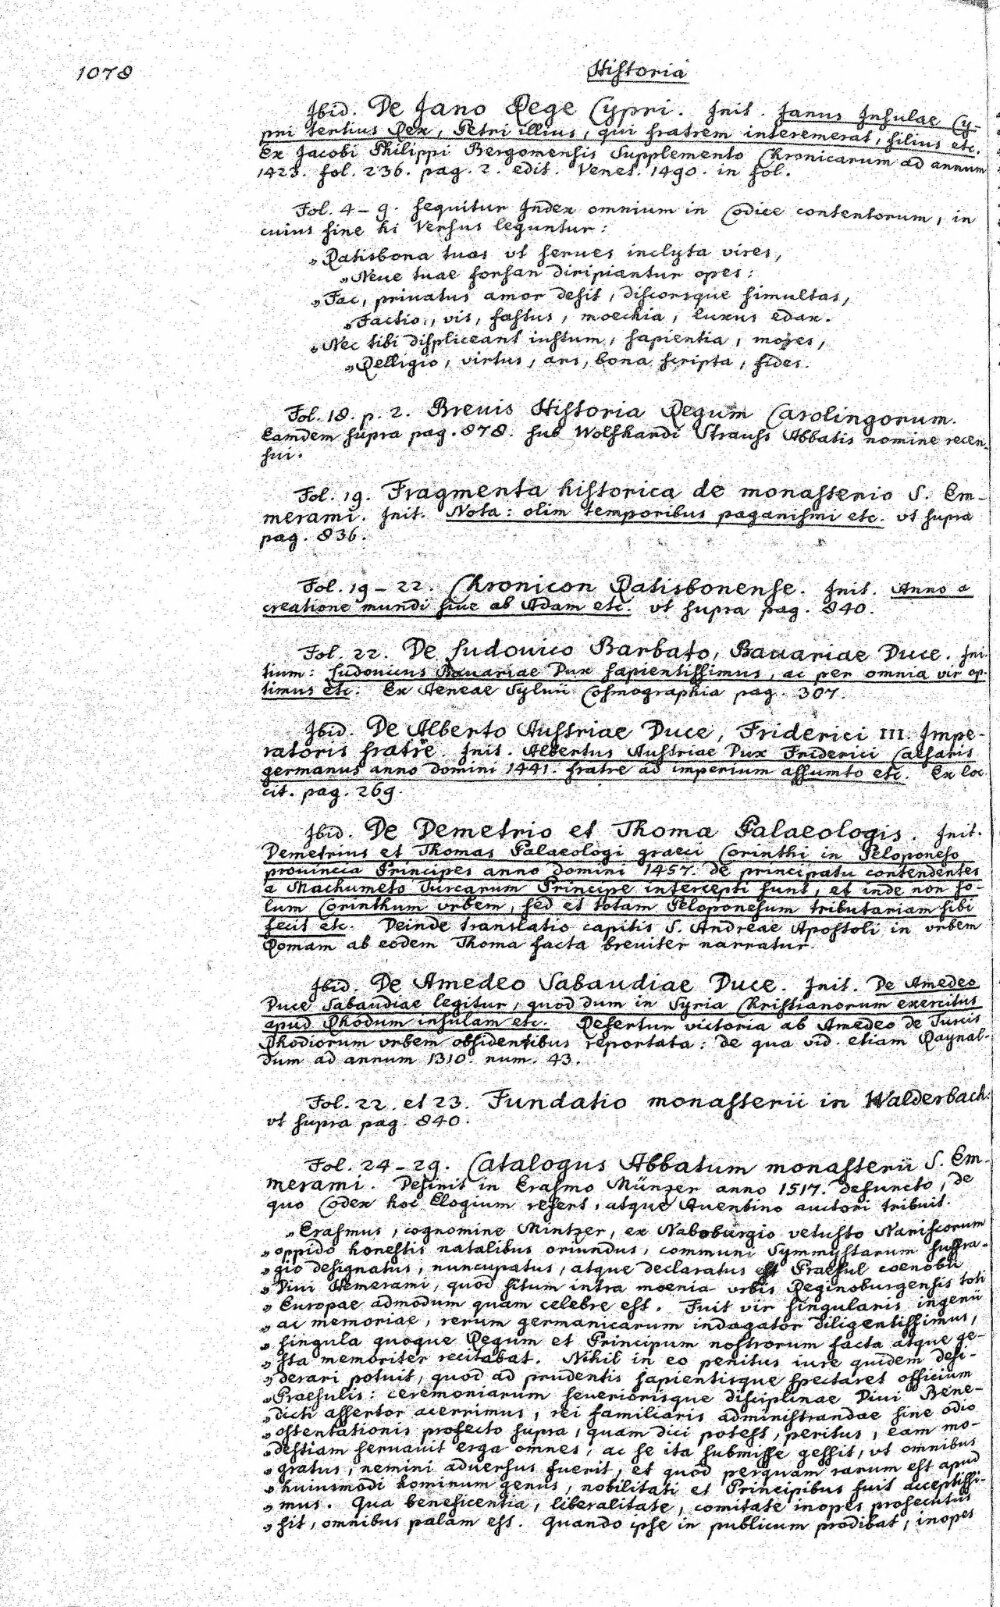 1078
Historia
Ibid. De Jano Rege Cypri. Init. Janus Insulae Cy-
pri tertius Rex, Petri illius, qui fratrem interemerat, filius etc.
Ex Jacobi Philippi Bergomensis Supplemento Chronicarum ad annum
1423. fol. 236. pag. 2. edit. Venet. 1490. in fol.
Fol. 4-9. sequitur Index omnium in Codice contentorum, in
cuius fine hi Versus leguntur:
„Ratisbona tuas vt serues inclyta vires,
„Neue tuae forsan diripiantur opes:
„Fac, priuatus amor desit, discorsque simultas,
„Factio, vis, fastus, moechia, luxus edax.
„Nec tibi displiceant iustum, sapientia, mores,
„Relligio, virtus, ars, bona scripta, fides.
Fol. 18. p. 2. Breuis Historia Regum Carolingorum.
Eamdem supra pag. 878. sub Wolfhardi Strauss Abbatis nomine recen-
sui.
Fol. 19. Fragmenta historica de monasterio S. Em-
merami. Init. Nota: olim temporibus paganismi etc. vt supra
pag. 836.
Fol. 19-22. Chronicon Ratisbonense. Init. Anno a
creatione mundi siue ab Adam etc. vt supra pag. 840.
Fol. 22. De Ludouico Barbato, Bauariae Duce. Ini-
tium: Ludouicus Bauariae Dux sapientissimus, ac per omnia vir op-
timus etc. Ex Aeneae Sylvii Cosmographia pag. 307.
Ibid. De Alberto Austriae Duce, Friderici III. Impe-
ratoris fratre. Init. Albertus Austriae Dux Friderici Caesaris
germanus anno domini 1441. fratre ad imperium assumto etc. Ex loc.
cit. pag. 269.
Ibid. De Demetrio et Thoma Palaeologis. Init.
Demetrius et Thomas Palaeologi graeci Corinthi in Peloponeso
prouincia Principes anno domini 1457. de principatu contendentes
a Machumeto Turcarum Principe intercepti sunt, et inde non so-
lum Corinthum vrbem, sed et totam Peloponesum tributariam sibi
fecit etc. Deinde translatio capitis S. Andreae Apostoli in vrbem
Romam ab eodem Thoma facta breuiter narratur.
Ibid. De Amedeo Sabaudiae Duce. Init. De Amedeo
Duce Sabaudiae legitur, quod dum in Syria Christianorum exercitus
apud Rhodum insulam etc. Refertur victoria ab Amedeo de Turcis
Rhodiorum vrbem obsidentibus reportata: de qua vid. etiam Raynal-
dum ad annum 1310. num. 43.
Fol. 22. et 23. Fundatio monasterii in Walderbach.
vt supra pag. 840.
Fol. 24-29. Catalogus Abbatum monasterii S. Em-
merami. Desinit in Erasmo Münzer anno 1517. defuncto, de
quo Codex hoc Elogium refert, atque Auentino auctori tribuit.
„Erasmus, cognomine Mintzer, ex Naboburgio vetusto Nariscorum
„oppido honestis natalibus oriundus, communi Symmystarum suffra-
„gio designatus, nuncupatus, atque declaratus est Praesul coenobii
„Diui Hemerami, quod situm intra moenia vrbis Reginoburgensis toti
„Europae admodum quam celebre est. Fuit vir singularis ingenii
„ac memoriae, rerum germanicarum indagator diligentissimus,
„singula quoque Regum et Principum nostrorum facta atque ge-
„sta memoriter recitabat. Nihil in eo penitus iure quidem desi-
„derari potuit, quod ad prudentis sapientisque spectaret officium
„Praesulis: ceremoniarum seueriorisque disciplinae Diui Bene-
„dicti assertor acerrimus, rei familiaris administrandae sine odio
„ostentationis profecto supra, quam dici potest, peritus, eam mo-
„destiam seruauit erga omnes, ac se ita submisse gessit, vt omnibus
„gratus, nemini aduersus fuerit, et quod perquam rarum est apud
„huiusmodi hominum genus, nobilitati et Principibus fuit acceptissi-
„mus. Qua beneficentia, liberalitate, comitate inopes prosecutus
„sit, omnibus palam est. Quando ipse in publicum prodibat, inopes